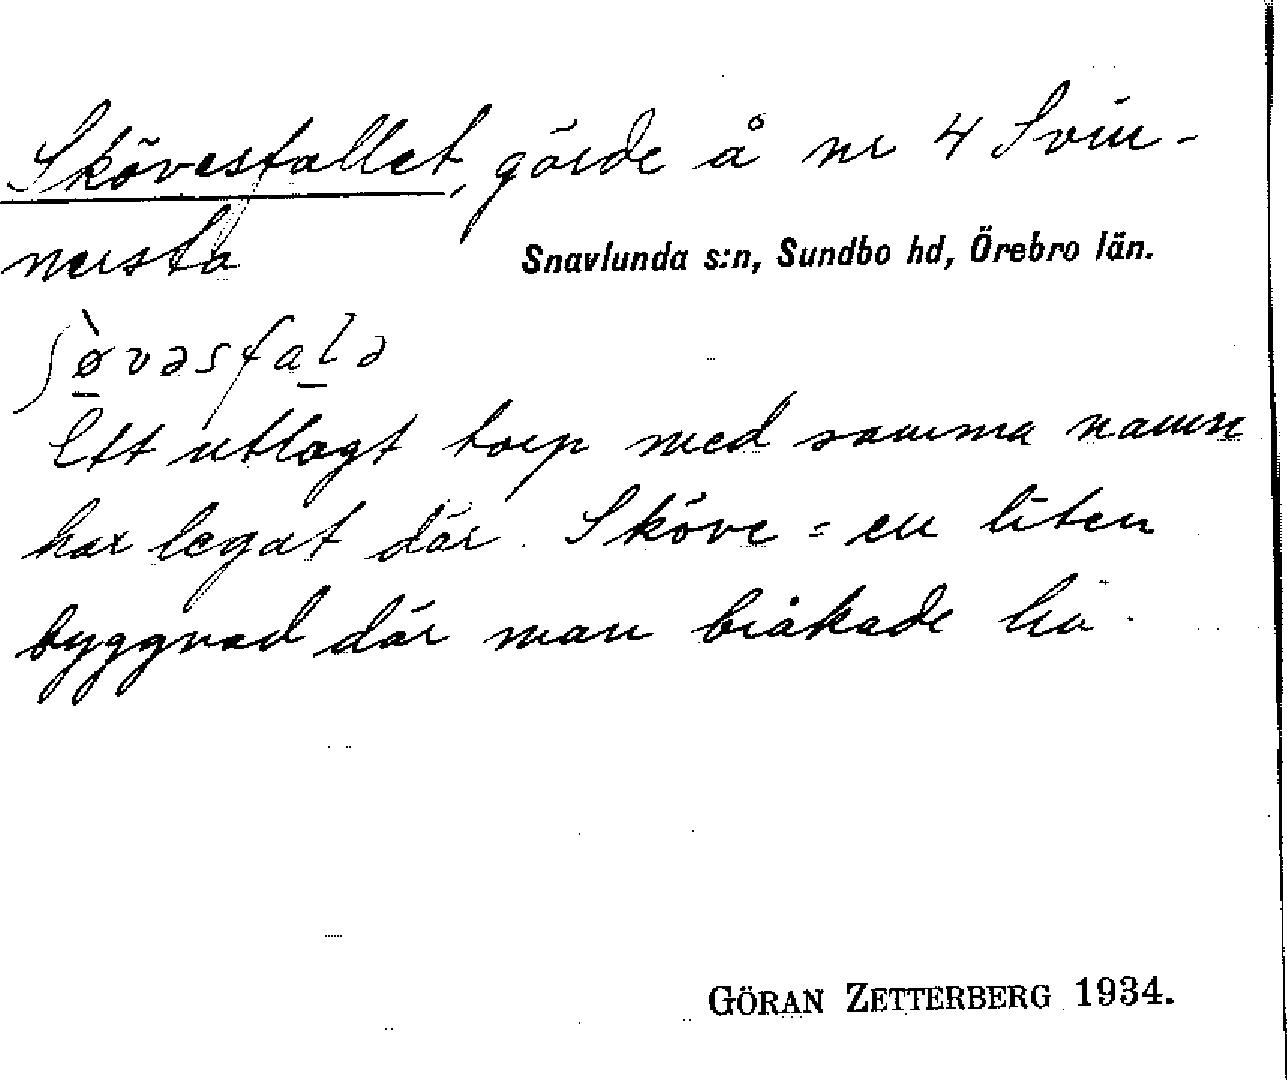 Skövesfallet, görde å nr 4 Svin-
nersta
Snavlunda s:n, Sundbo hd, Örebro län.
ʃø̀vəsfalə
Ett utlagt torp med samma namn
har legat där. Sköve = en liten
byggnad där man bråkade lin.
GÖRAN ZETTERBERG 1934.